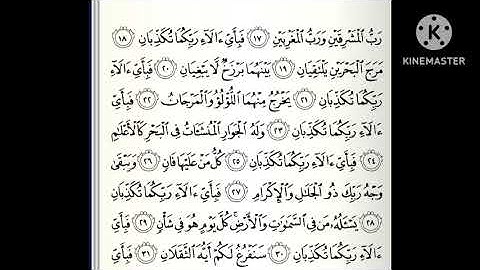 رَبُّ ٱلْمَشْرِقَيْنِ وَرَبُّ ٱلْمَغْرِبَيْنِ ١٧ فَبِأَىِّ ءَالَآءِ رَبِّكُمَا تُكَذِّبَانِ ١٨
مَرَجَ ٱلْبَحْرَيْنِ يَلْتَقِيَانِ ١٩ بَيْنَهُمَا بَرْزَخٌ لَّا يَبْغِيَانِ ٢٠ فَبِأَىِّ ءَالَآءِ
رَبِّكُمَا تُكَذِّبَانِ ٢١ يَخْرُجُ مِنْهُمَا ٱللُّؤْلُؤُ وَٱلْمَرْجَانُ ٢٢ فَبِأَىِّ
ءَالَآءِ رَبِّكُمَا تُكَذِّبَانِ ٢٣ وَلَهُ ٱلْجَوَارِ ٱلْمُنشَـَٔاتُ فِى ٱلْبَحْرِ كَٱلْأَعْلَٰمِ
٢٤ فَبِأَىِّ ءَالَآءِ رَبِّكُمَا تُكَذِّبَانِ ٢٥ كُلُّ مَنْ عَلَيْهَا فَانٍ ٢٦ وَيَبْقَىٰ
وَجْهُ رَبِّكَ ذُو ٱلْجَلَٰلِ وَٱلْإِكْرَامِ ٢٧ فَبِأَىِّ ءَالَآءِ رَبِّكُمَا تُكَذِّبَانِ
٢٨ يَسْـَٔلُهُۥ مَن فِى ٱلسَّمَٰوَٰتِ وَٱلْأَرْضِ كُلَّ يَوْمٍ هُوَ فِى شَأْنٍ ٢٩ فَبِأَىِّ
ءَالَآءِ رَبِّكُمَا تُكَذِّبَانِ ٣٠ سَنَفْرُغُ لَكُمْ أَيُّهَ ٱلثَّقَلَانِ ٣١ فَبِأَىِّ
KINEMASTER